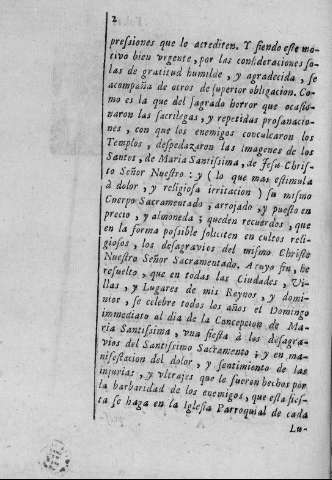 2
pressiones que lo acrediten. Y siendo este mo-
tivo bien urgente, por las consideraciones so-
las de gratitud humilde, y agradecida, se
acompaña de otros de superior obligacion. Co-
mo es la que del sagrado horror que ocasio-
naron las sacrilegas, y repetidas profanacio-
nes, con que los enemigos conculcaron los
Templos, despedazaron las imagenes de los
Santos, de Maria Santissima, de Jesu Chris-
to Señor Nuestro: y (lo que mas estimula
à dolor, y religiosa irritacion) su mismo
Cuerpo Sacramentado, arrojado, y puesto en
precio, y almoneda; queden recuerdos, que
en la forma possible soliciten en cultos reli-
giosos, los desagravios del mismo Christo
Nuestro Señor Sacramentado. A cuyo fin, he
resuelto, que en todas las Ciudades, Vi-
llas, y Lugares de mis Reynos, y domi-
nios, se celebre todos los años el Domingo
immediato al dia de la Concepcion de Ma-
ria Santissima, vna fiesta à los desagra-
vios del Santissimo Sacramento, y en ma-
nifestacion del dolor, y sentimiento de las
injurias, y vltrajes que le fueron hechos por
la barbaridad de los enemigos, que esta fies-
ta se haga en la Iglesia Parroquial de cada
Lu-